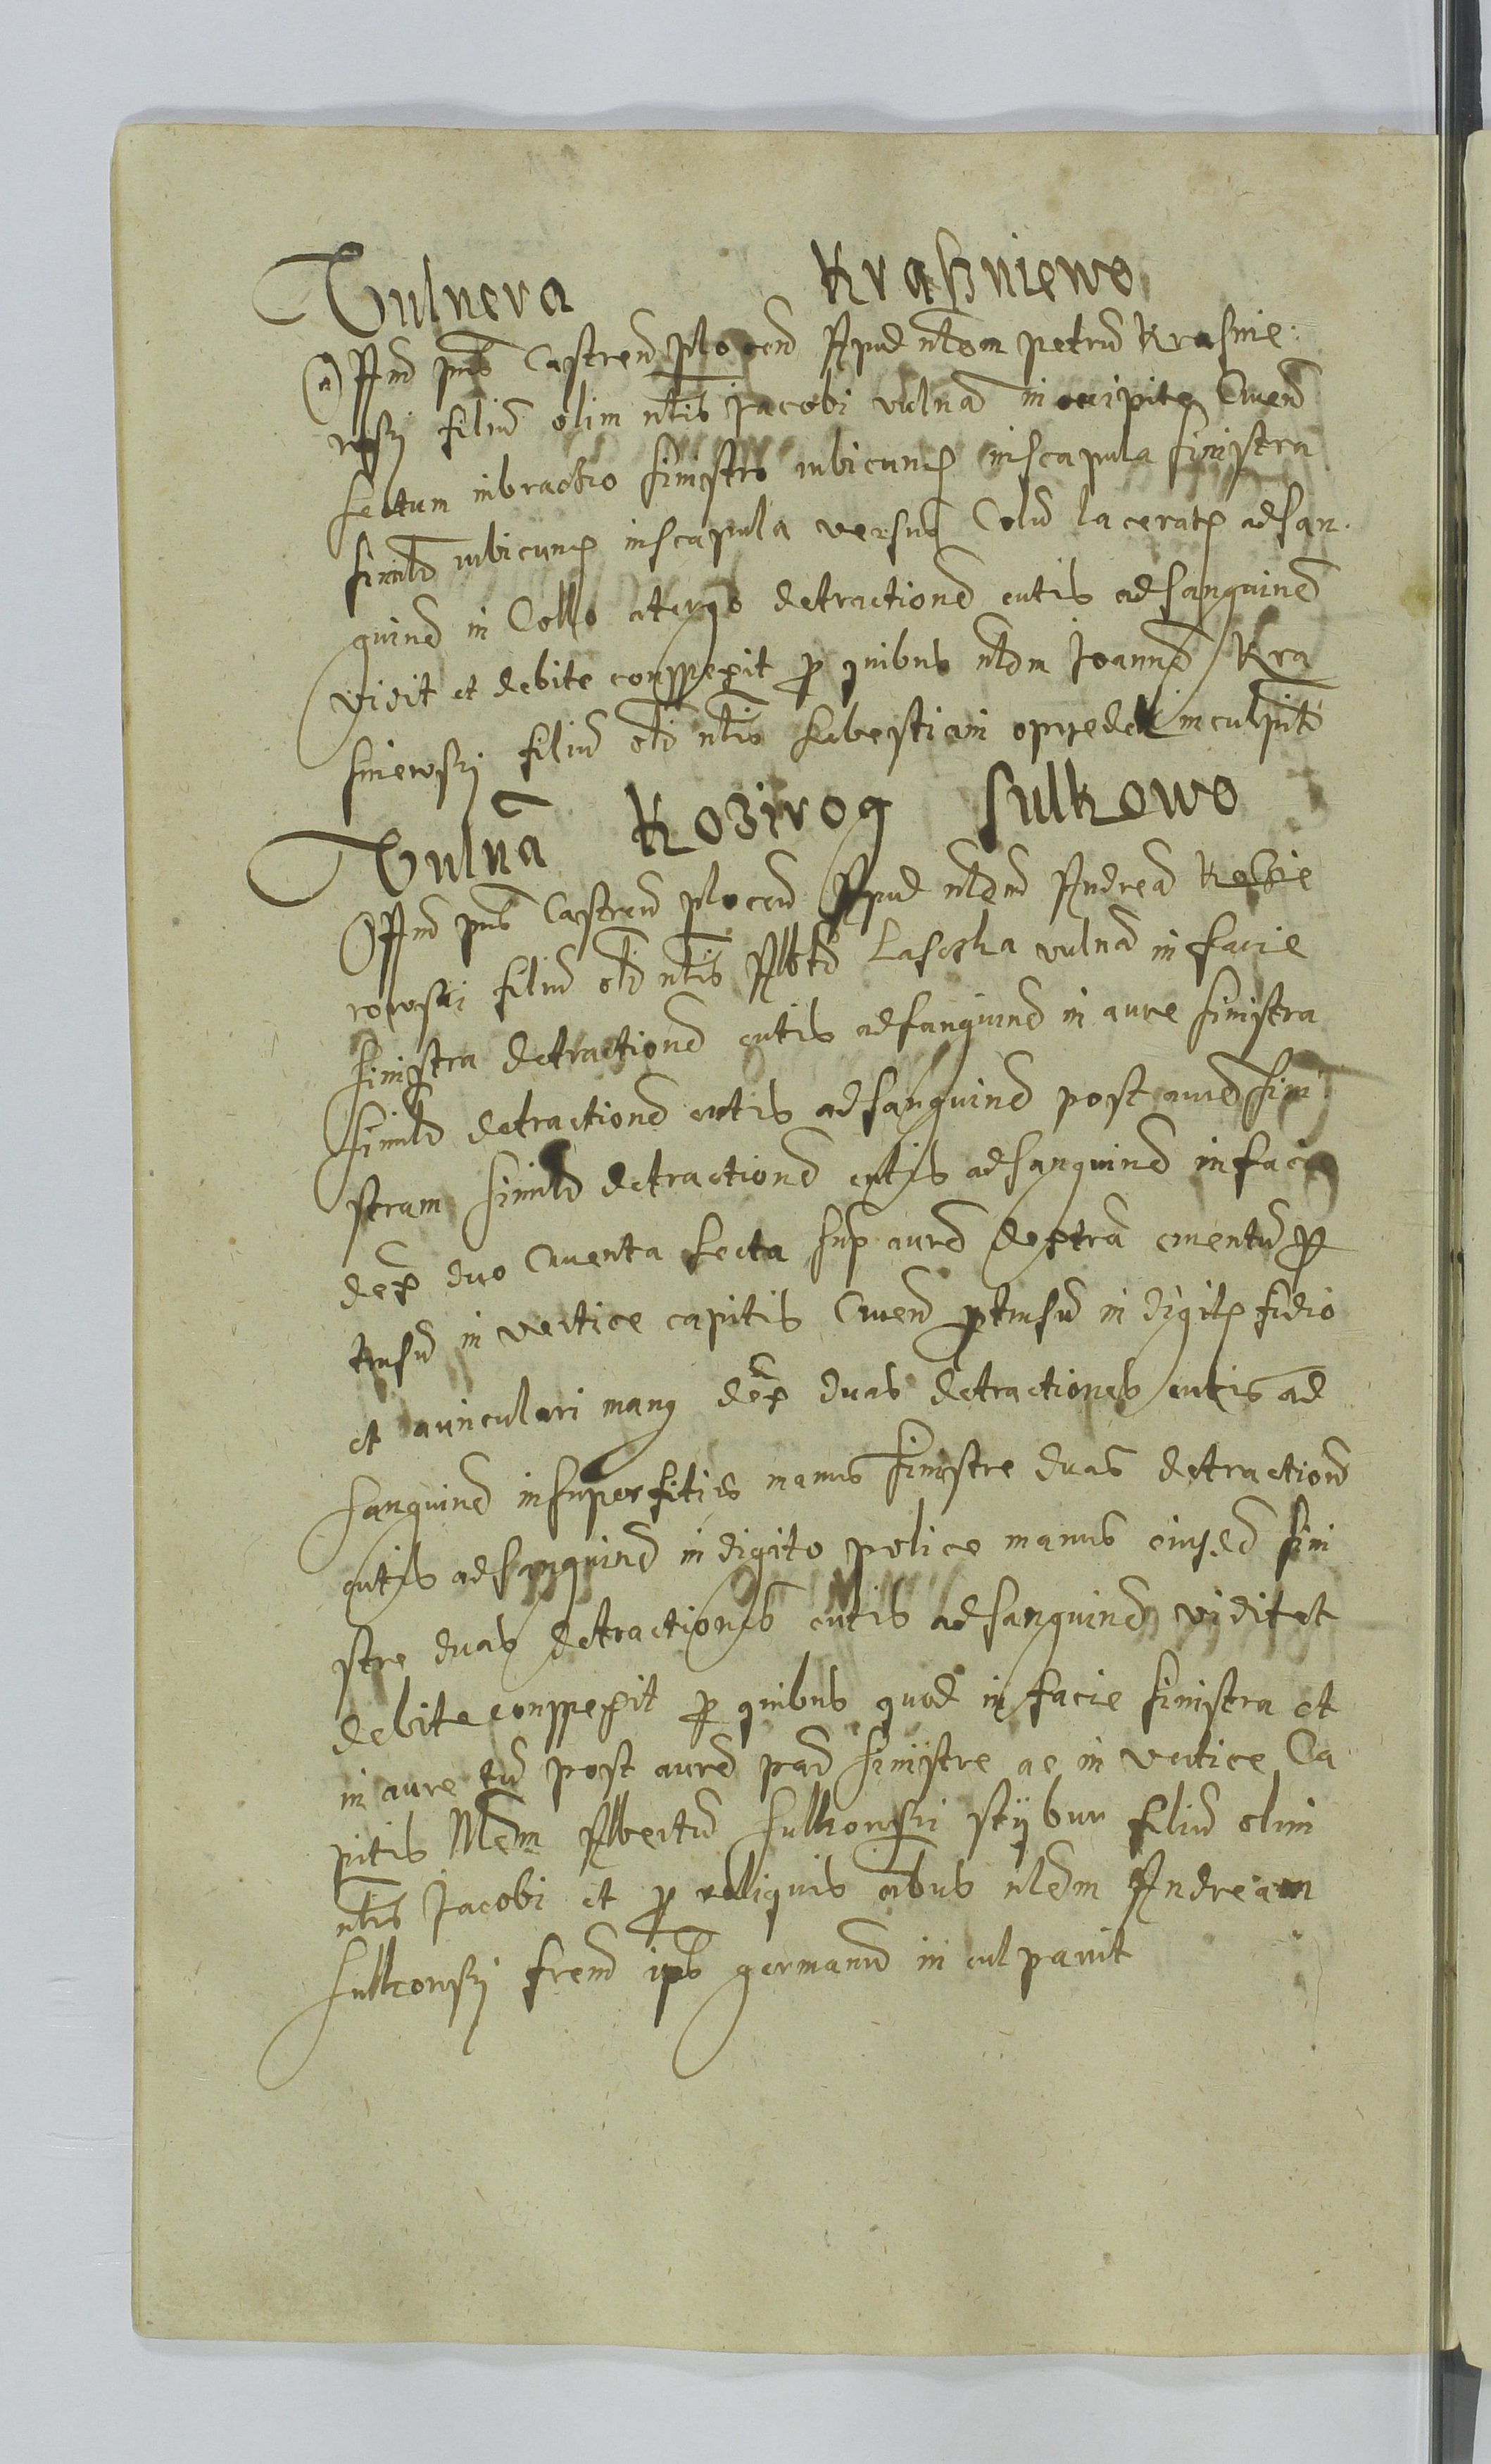 Vulnera Kraszniewo
Offm pns Castren plocen Apud nblem petru Krasnie:
wsky filiu olim nblis Jacobi vulna in occipite Cruen
sectum in brachio sinistro rubicunda in scapula sinistra
simile rubicunda in scapula versus Colu laceratu ad san.
guine in Collo a tergo detractione cutis ad sanguine
vidit et debite conspexit p quibus nblem Joanne Kra
sniewsky filiu oli nblis Sebestiani inculpit
Vulna Kozirog Sulkowo
Offm pns Castren plocen Apud nblem Andrea Kozie
rowski filiu oli nblis Alberti Lasotha vulna in facie
sinistra detractione cutis ad sanguine in aure sinistra
simile detractione cutis ad sanguine post aure sini
stram simile detractione cutis ad sanguine in facie
dex duo Cruenta secta sup aure dextra cruentu p
tusu in vertice capitis Cruen ptusu in digito
et auriculari manu dex duas detractiones cutis ad
sanguine in superfitie manus sinistre duas detraction
cutis ad sanguine in digito police manus eiusde sini
stre duas detractiones cutis ad sanguine vidit et
debite conspexit p quibus quod in facie sinistra et
in aure tu post aure sinistre ac in vertice Ca
pitis Nblem Albertu Sulkowski stybur filiu olim
nblis Jacobi et p reliquis oibus nblem Andream
Sulkowsky frem ipis germanu inculpavit